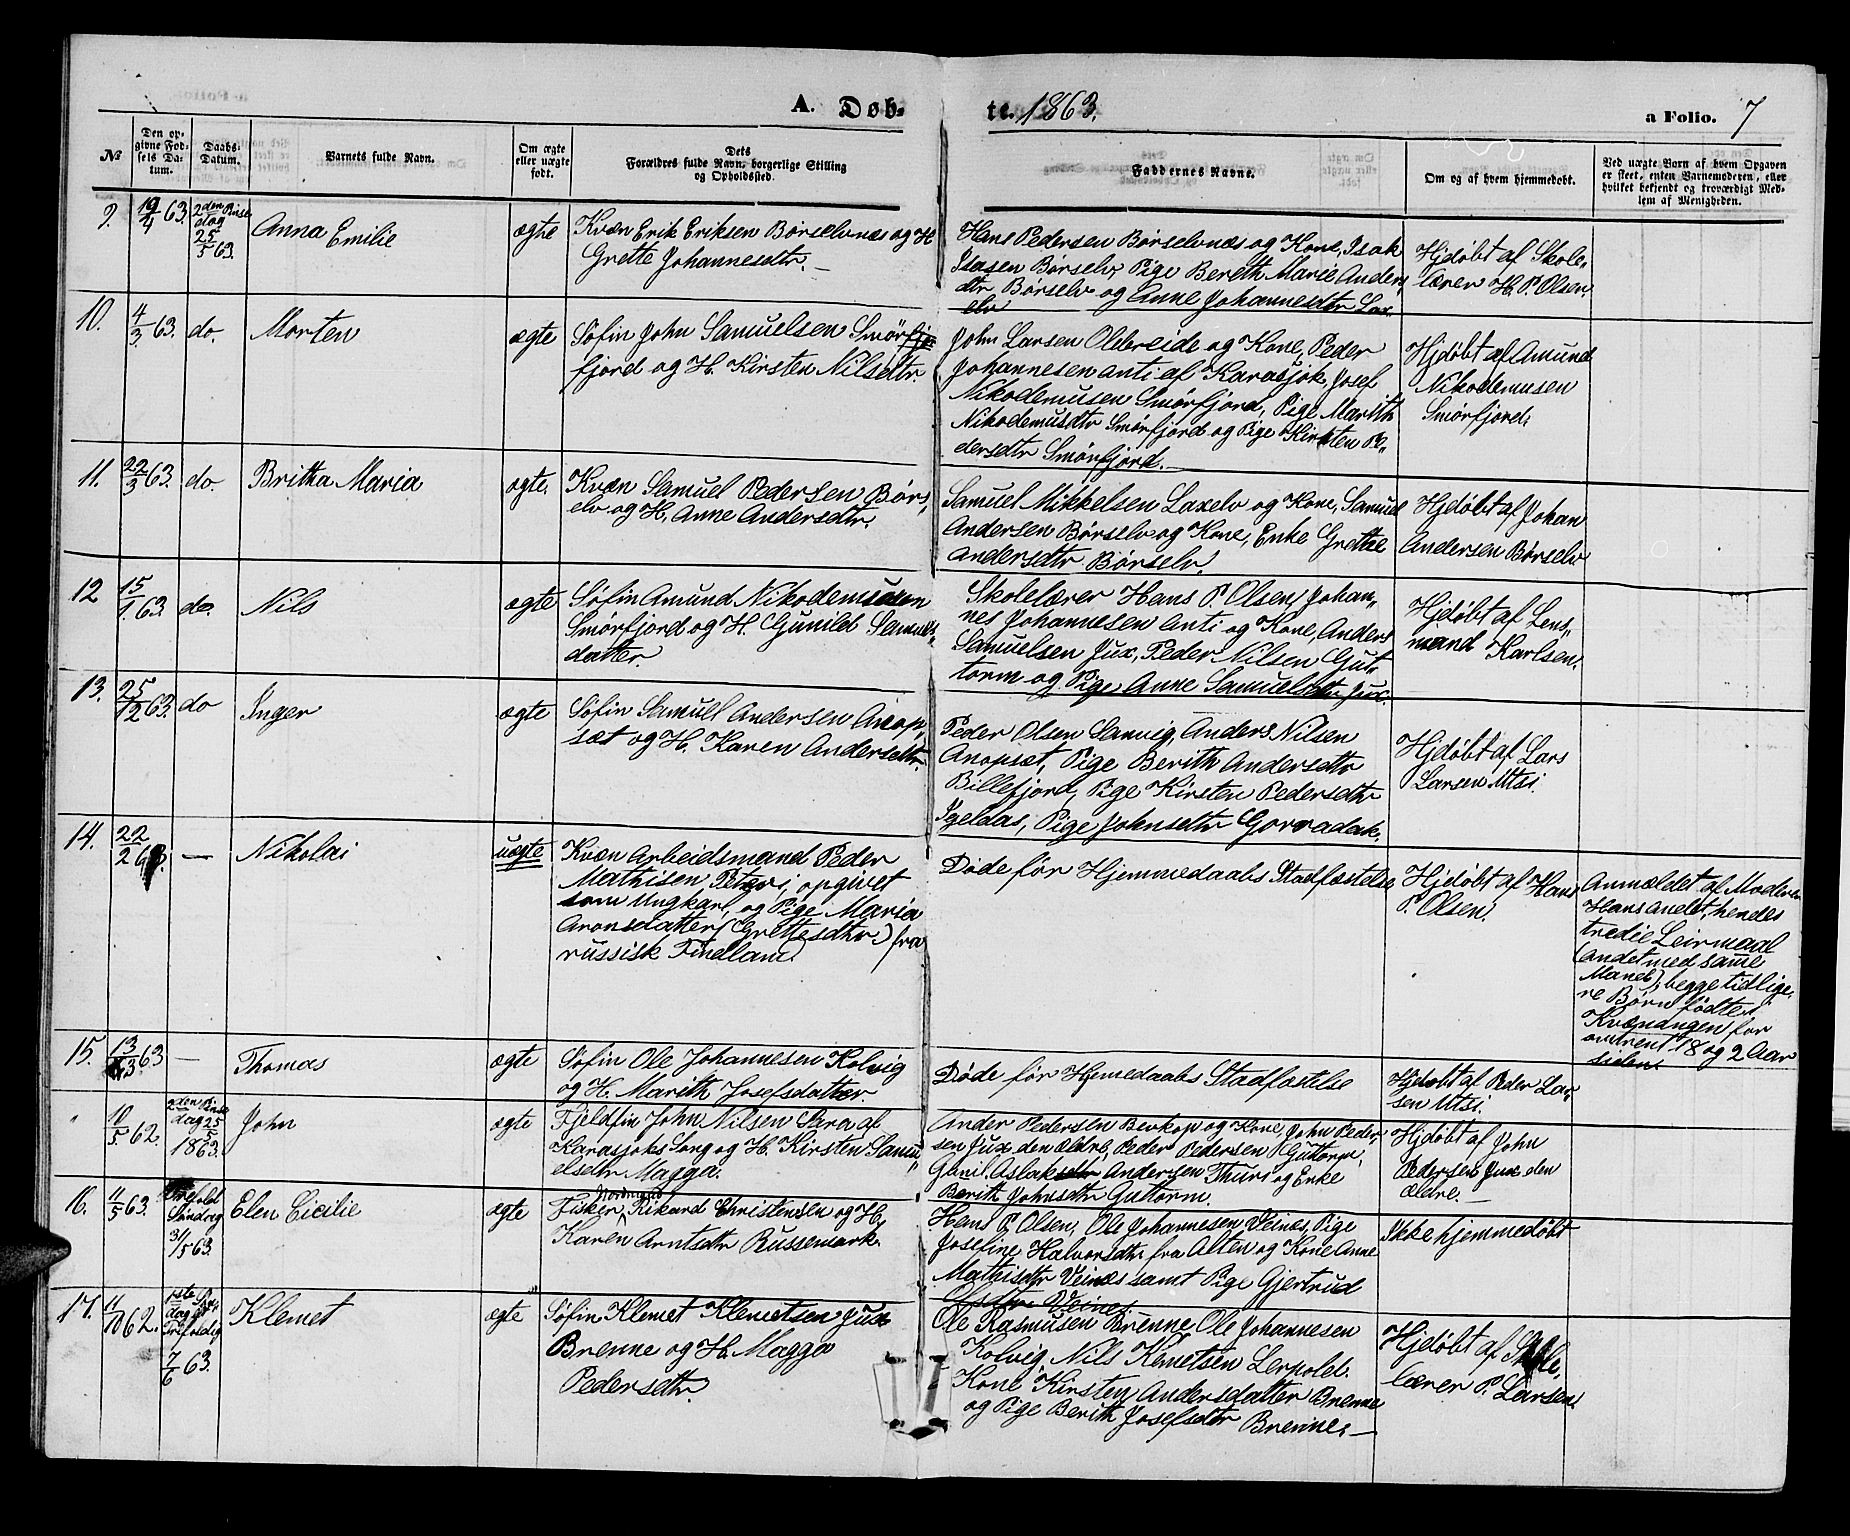 A. Døb- te. 1863. a Folio. 7
№
Den op-
givne Fød-
sels Da-
tum.
Daabs-
Datum.
Barnets fulde Navn.
Om ægte
eller uægte
født.
Dets
Forældres fulde Navn, borgerlige Stilling
og Opholdssted.
Faddernes Navne.
Om og af hvem hjemmedøbt.
Ved uægte Barn af hvem Opgaven
er skeet, enten Barnemoderen, eller
hvilket bekjendt og troværdigt Med-
lem af Menigheden.
9.
19/4 63.
2den Pinse
dag
25/5 63.
Anna Emilie
ægte
Kvæn Erik Eriksen Børselvnæs og H.
Grette Johannesdtr. —
Hans Pedersen Børselvnæs og Kone, Isak
Isasen Børselv Pige Bereth Marie Anders
dtr Børselv og Anne Johannesdtr Lax,
elv
Hjdøbt af Skole,
lærer H. P. Olsen.
10.
4/3 63.
do.
Morten
ægte
Søfin John Samuelsen Smørfjo
fjord og H. Kirsten Nilsdtr.
John Larsen Oldereide og Kone, Peder
Johannesen Anti af Karasjok, Josef
Nikodemusen Smørfjord, Pige Marith
Nikodemusdtr Smørfjord og Pige Kirsten Pe-
dersdtr Smørfjord. —
Hjdøbt af Amund
Nikodemusen
Smørfjord.
11.
22/3 63.
do.
Britha Maria
ægte.
Kvæn Samuel Pedersen Børs,
elv og H. Anne Andersdtr.
Samuel Mikkelsen Laxelv og Kone, Samuel
Andersen Børselv og Kone, Enke Grethe
Andersdtr Børselv.
Hjdøbt af Johan
Andersen Børselv
12
15/1 63.
do.
Nils
ægte
Søfin Amund Nikodemusen
Smørfjord og H. Gunild Samuels-
datter.
Skolelærer Hans P. Olsen, Johan-
nes Johannesen Anti og Kone, Anders
Samuelsen Jux, Peder Nilsen Gut,
torm og Pige Anne Samuelsdtr Jux.
Hjdøbt af Lens,
mand Karlsen.
13.
25/12 63.
do
Inger
ægte
Søfin Samuel Andersen Anop,
sæt og H. Karen Andersdtr.
Peder Olsen Sanvig, Anders Nilsen
Anopset, Pige Berith Andersdtr
Billefjord, Pige Kirsten Pedersdtr
Igeldas, Pige Johnsdtr Gorradak.
Hjdøbt af Lars
Larsen Utsi.
14.
22/2 63.
—
Nikolai
uægte
Kvæn Arbeidsmand Peder
Mathisen Petari, opgivet
som Ungkarl, og Pige Maria
Aronsdatter (Grettesdtr) fra
russisk Finnland.
Døde før Hjemmedaabs Stadfæstelse
Hjdøbt af Hans
P. Olsen.
Anmældet af Moderen
Hans andet, hendes
tredie Leirmaal
(andet med samme
Mand), begge tidlige,
re Børn fødte i
Kvænangen for
omtrent 18 og 2 Aar
siden.
15.
13/3 63
—
Thomas
ægte
Søfin Ole Johannesen Kolvig
og H. Marith Josefsdatter
Døde før Hjemedaabs Stadfæstelse
Hjdøbt af Peder Lar-
sen Utsi.
"
10/5 62.
2den Pinse
dag 25/5
1863.
John
ægte
Fjeldfin John Nilsen Sara af
Karasjoks Sogn og H. Kirsten Samu,
elsdtr Magga.
Ander Pedersen Bevkop og Kone, John Peder-
sen Jux den Ældre, Peder Pedersen Guttorm,
Gunil Aslaksdtr Andersen Thuri og Enke
Berith Johnsdtr Guttorm.
Hjdøbt af John
Pedersen Jux den
ældre. —
16.
11/5 63.
Trefold
Søndag
31/5 63.
Elen Cicilie
ægte
Fisker Nordmand Rikard Christensen og H.
Karen Arntsdtr Russemark.
Hans P. Olsen, Ole Johannesen Veines, Pige
Josefine Halvorsdtr fra Alten og Kone Anne
Mathisdtr Veines samt Pige Gjertrud
Olsdtr Veines
Ikke hjemmedøbt
17.
11/10 62.
1ste Søn
dag
Trefoldig
7/6 63.
Klemet
ægte
Søfin Klemet Klemetsen Jux
Brenne og H. Magga
Pedersdtr.
Ole Rasmusen Brenne, Ole Johannesen
Kolvig, Nils Klemetsen Lerpold.
Kone Kirsten Andersdatter Brenne
og Pige Berith Josefsdtr Brenne. —
Hjdøbt af Skole,
lærer P. Larsen.